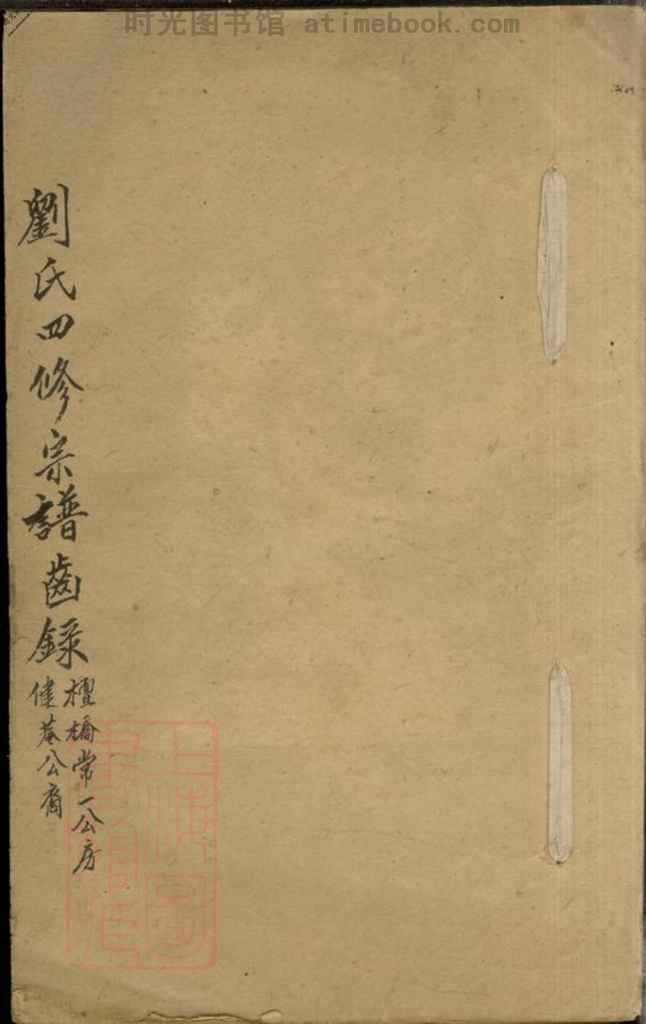 时光图书馆 atimebook.com
劉氏四修宗譜齒錄
檀橋常一公房
健菴公裔